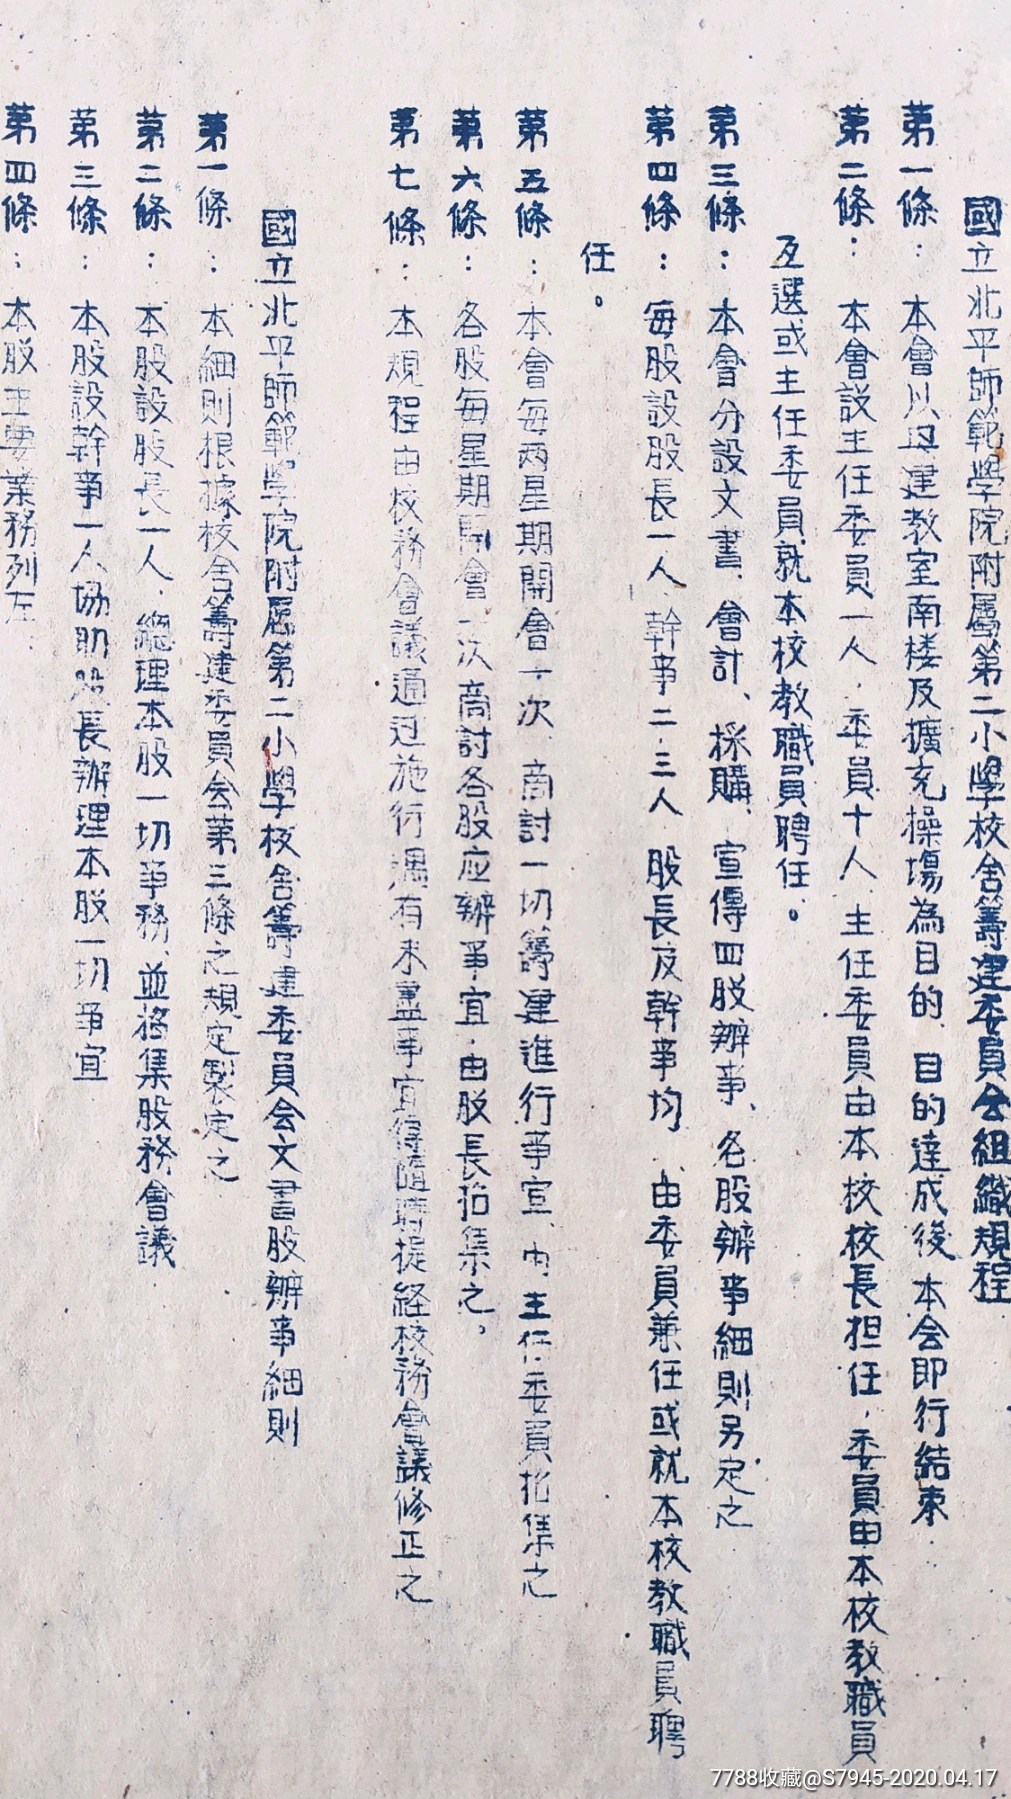 國立北平師範學院附屬第二小學校舍籌建委員会組織規程
第一條：本會以興建教室南楼及擴充操場為目的、目的達成後、本会即行結束．
第二條：本會設主任委員一人，委員十人、主任委員由本校校長担任，委員由本校教職員
互選或主任委員就本校教職員聘任。
第三條：本會分設文書、會計、採購、宣傳四股辦事、各股辦事細則另定之
第四條：每股設股長一人、幹事二、三人、股長及幹事均由委員兼任或就本校教職員聘
任。
第五條：本會每兩星期開會一次、商討一切籌建進行事宜、由主任委員招集之
第六條：各股每星期開會一次商討各股应辦事宜，由股長招集之。
第七條：本規程由校務會議通过施行遇有未盡事宜得隨時提経校務會議修正之
國立北平師範學院附屬第二小學校舍籌建委員会文書股辦事細則
第一條：本細則根據校舍籌建委員会第三條之規定製定之
第二條：本股設股長一人，總理本股一切事務、並招集股務會議
第三條：本股設幹事一人協助股長辦理本股一切事宜
第四條：本股主要業務列左：
7788收藏@S7945-2020.04.17